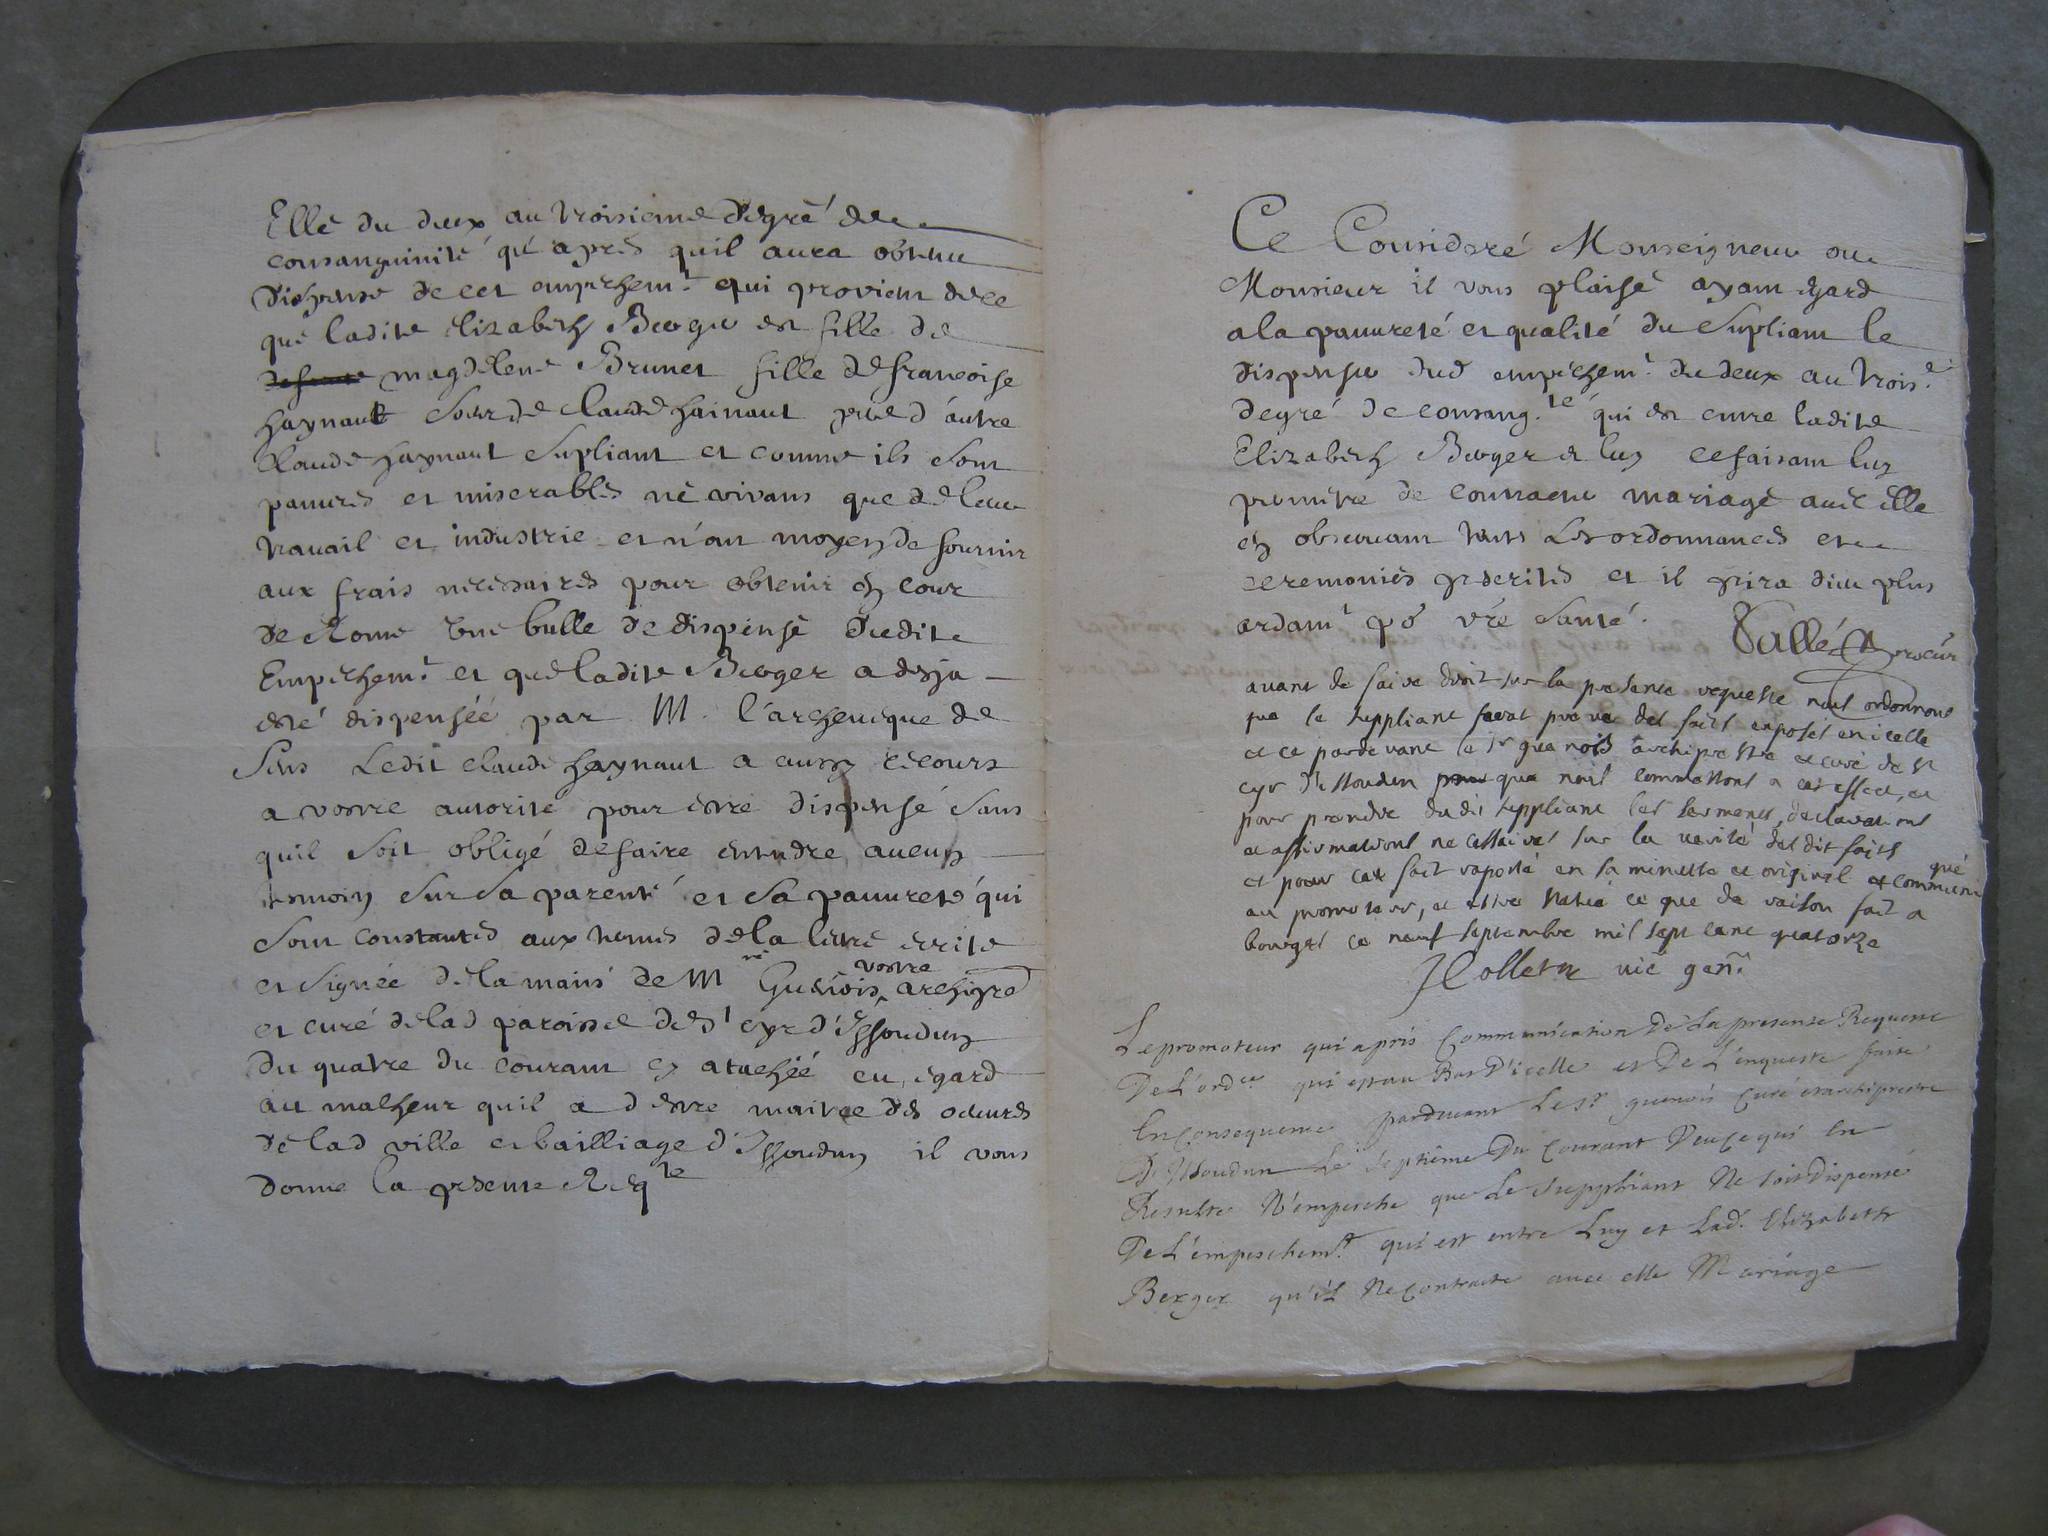 Elle du deux au troisieme degré de
consanguinité qu'apres quil aura obtenu
dispense de cet empechemt qui provient de ce
que ladite Elizabeth Berger est fille de
magdelene Brunet fille de francoise
haynault soeur de claude hainaut pere d'autre
Claude haynaut supliant et comme ils sont
pauures et miserables ne vivans que de leur
trauail et industrie et n'ont moyen de fournir
aux frais necessaires pour obtenir en cour
de Rome une bulle de dispense dudit
Empechemt et que ladite Berger a desja
esté dispensée par M. l'archeueque de
Sens Ledit claude haynaut a aussy recours
a vostre autorite pour estre dispensé sans
quil soit obligé de faire entendre aucun
temoin sur sa parenté et sa pauureté qui
sont constantes aux termes de la lettre ecrite
et signée de la main de Mre Guenois vostre archipre
et curé de lad paroisse de St cyr d'Issoudun
du quatre du courant cy atachée eu egard
au malheur quil a d'estre maitre des oeuures
de lad ville et bailliage d'Issoudun il vous
donne la pnte Reqte
Ce Consideré Monseigneur ou
Monsieur il vous plaise ayant egard
a la pauureté et qualité du supliant le
dispenser dud empechemt du deux au troise
degré de consangte qui est entre ladite
Elizabeth Berger et luy ce faisant luy
permettre de contracter mariage auec elle
en obseruant touts les ordonnances et
ceremonies prescrites et il prira dieu plus
ardamt po vre santé. Vallée procür
auant de faire droit sur la presente requeste nous ordonnons
que le suppliant fera preuve des faits exposés en icelle
et ce pardevant le sr guenois archiprestre et curé de st
cyr d'Issoudun que nous commettons a cet effect, et
pour prendre dudit suppliant les serments, declarations
et affirmations necessaires sur la verité des dits faits
et pour ce fait raporté en sa minutte et original et communiqué
au promoteur, et estre statué ce que de raison fait a
bourges ce neuf septembre mil sept cent quatorze
JColletn vic gen.
Le promoteur qui apris Communication de la presente Requeste
De L'ordce qui est au Bas D'icelle et De L'enqueste faite
En consequence pardevant Le sr guenois curé et archiprestre
D'Issoudun Le septiéme Du Courant Veu ce qui En
Resulte N'empesche que Le supphiant Ne soit Dispensé
De L'empeschemt qui est entre Luy et Lad. Elizabeth
Berger qu'il Ne contracte avec elle Mariage